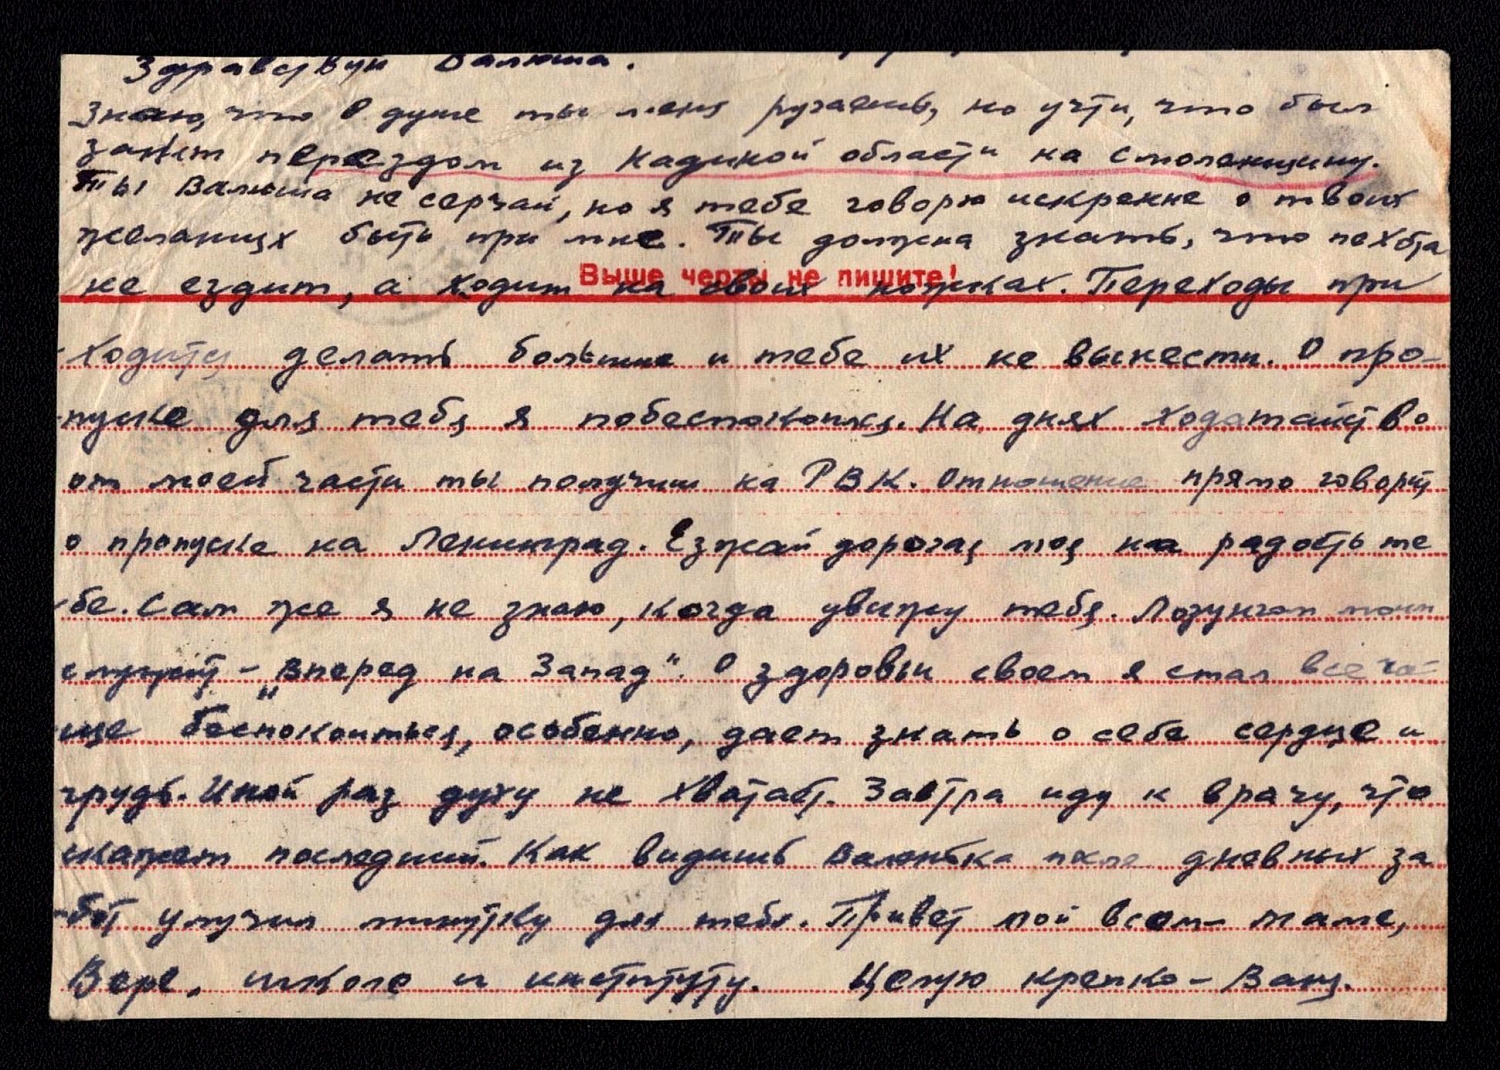 Здравствуй Валюша.
Знаю, что в душе ты меня ругаешь, но учти, что был
занят переездом из Калинской области на Смоленщину.
Ты Валюша не серчай, но я тебе говорю искренне о твоих
желаниях быть при мне. Ты должна знать, что пехота
Выше черты не пишите!
не ездит, а ходит на своих ножках. Переходы при
ходится делать большие и тебе их не вынести. О про-
пуске для тебя я побеспокоился. На днях ходатайство
от моей части ты получиш на РВК. Отношение прямо говорит
о пропуске на Ленинград. Езжай дорогая моя на радость те
бе. Сам же я не знаю, когда увижу тебя. Лозунгом моим
служит – „Вперед на Запад". О здоровьи своем я стал все ча-
ще беспокоиться, особенно, дает знать о себе сердце и
грудь. Иной раз духу не хватает. Завтра иду к врачу, что
скажет последний. Как видишь Валюшка после дневных за
бот улучил минутку для тебя. Привет мой всем – маме,
Вере, школе и институту. Целую крепко – Ваня.